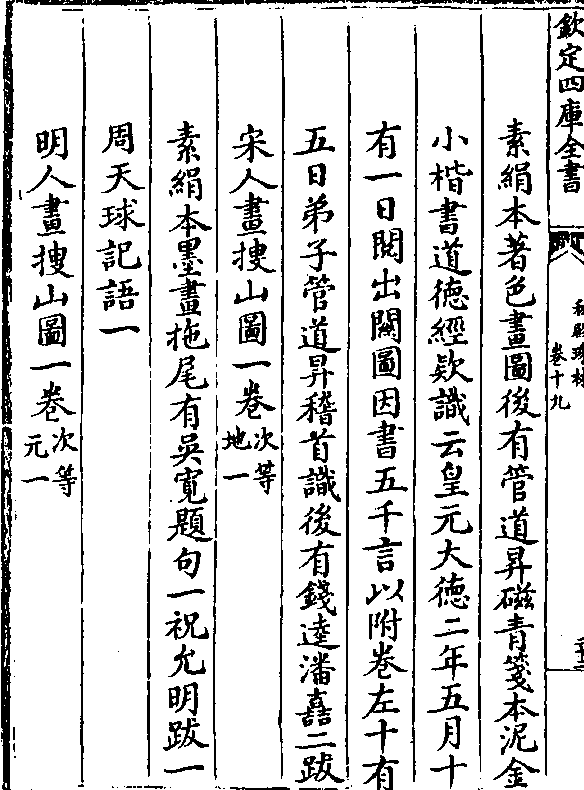 欽定四庫全書
卷十九
素絹本著色畫圖後有管道昇磁青箋本泥金
小楷書道德經欵識云皇元大德二年五月十
有一日閱出關圖因書五千言以附卷左十有
五日弟子管道昇稽首識後有錢逵潘嘉二跋
宋人畫搜山圖一卷次等地一
素絹本墨畫拖尾有吳寛題句一祝允明跋一
周天球記語一
明人畫搜山圖一卷次等元一